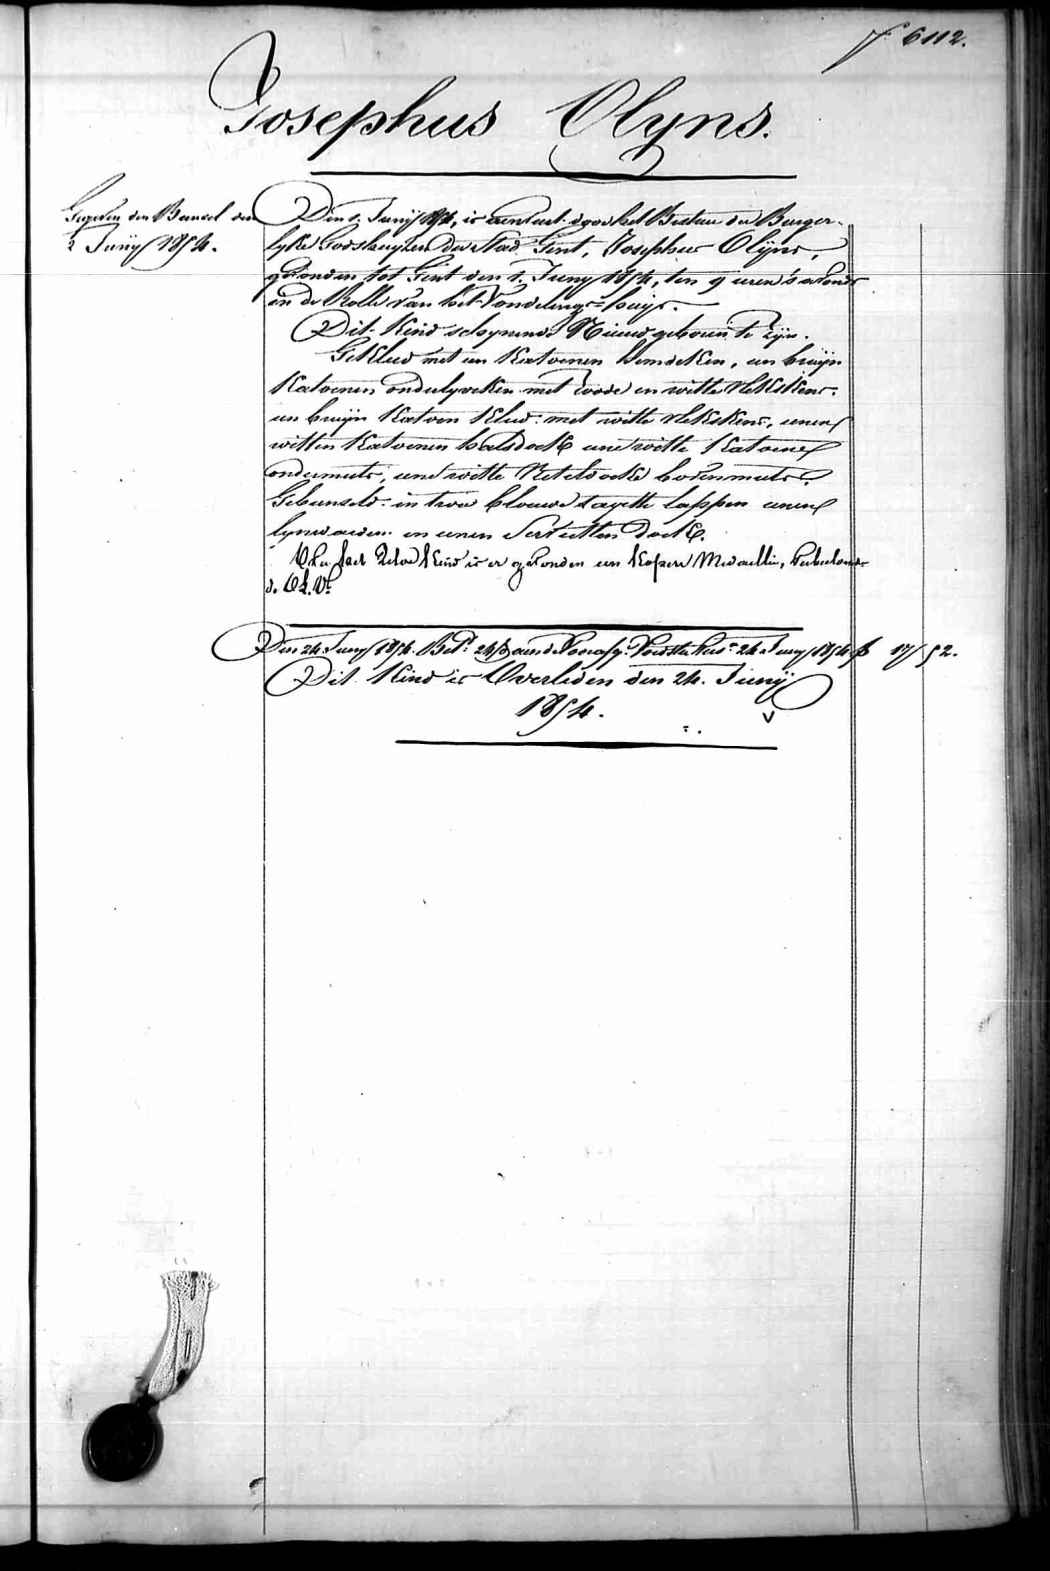 f 6112.
Josephus Olyns.
Gegeven den Bunsel den
2 Junij 1854.
Den 1. Junij 1854, is aenveerd door het Bureau der Burger-
lyke Godshuyzen der Stad Gent, Josephus Olijns,
gevonden tot Gent den 1. Juny 1854, ten 9 uren 's avonds
in de Rolle van het Vondelings-huijs.
Dit Kind schynende Nieuwgeboren te zijn.
Gekleed met een Katoenen hemdeken, een bruijn
Katoenen onderlyveken met roode en witte vlekskens.
een bruijn Katoen Kleed: met witte vlekskens, eenen
witten Katoenen halsdoek eene witte Katoene
ondermuts, eene witte Neteldoeke bovenmuts.
Gebunseld: in twee blauwe lappen eenen
lynwaeden en eenen Servietten Doek.
Op het Zelve Kind is er gevonden een Kopere Medaellie, Verbeeldende
d. O.L.V.
Den 24 Juny 1854. 24 Juny 1854 17/52.
Dit Kind is Overleden den 24. Junij
1854.